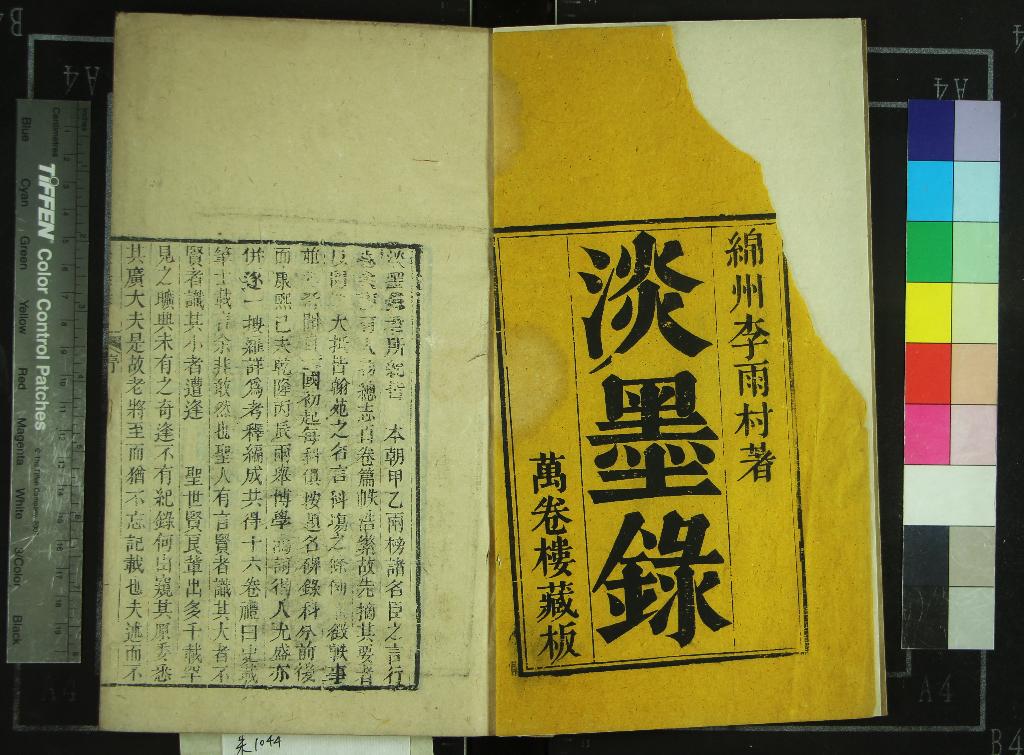 綿州李雨村著
淡墨錄
萬卷樓藏板
淡墨錄者所紀皆 本朝甲乙兩榜諸名臣之言行
總志百卷篇帙浩繁故先摘其要者
大抵皆翰苑之名言科場之條例
國初起每科俱按題名碑錄科分前後
而康熙己未乾隆丙辰兩舉博學鴻詞得人尤盛亦
併逐一搜羅詳為考釋編成共得十六卷禮曰史載
筆士載言余非敢然也聖人有言賢者識其大者不
賢者識其小者遭逢 聖世賢良輩出多千載罕
見之曠典未有之奇逢不有紀錄何由窺其原委悉
其廣大夫是故老將至而猶不忘記載也夫述而不
序
TIFFEN Color Control Patches
© The Tiffen Company, 2007
Centimetres
Inches
Blue
Cyan
Green
Yellow
Red
Magenta
White
3/Color
Black
朱1044
B4
A4
A4
A4
A4
A4
B4